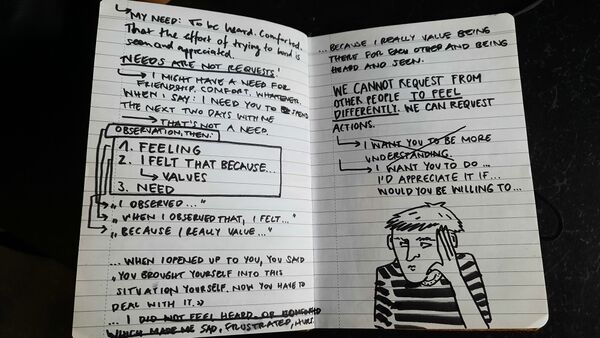 MY NEED: TO BE HEARD. COMFORTED.
THAT THE EFFORT OF TRYING TO BOND IS
SEEN AND APPRECIATED.
NEEDS ARE NOT REQUESTS!
I MIGHT HAVE A NEED FOR
FRIENDSHIP. COMFORT. WHATEVER.
WHEN I SAY: I NEED YOU TO SPEND
THE NEXT TWO DAYS WITH ME
THAT'S NOT A NEED.
OBSERVATION, THEN:
1. FEELING
2. I FELT THAT BECAUSE...
VALUES
3. NEED
„I OBSERVED..."
„WHEN I OBSERVED THAT, I FELT..."
„BECAUSE I REALLY VALUE..."
... WHEN I OPENED UP TO YOU, YOU SAID
„YOU BROUGHT YOURSELF INTO THIS
SITUATION YOURSELF. NOW YOU HAVE TO
DEAL WITH IT."
... I DID NOT FEEL HEARD OR COMFORTED
WHICH MADE ME SAD, FRUSTRATED, HURT.
...BECAUSE I REALLY VALUE BEING
THERE FOR EACH OTHER AND BEING
HEARD AND SEEN.
WE CANNOT REQUEST FROM
OTHER PEOPLE TO FEEL
DIFFERENTLY. WE CAN REQUEST
ACTIONS.
I WANT YOU TO BE MORE
UNDERSTANDING.
I WANT YOU TO DO...
I'D APPRECIATE IT IF...
WOULD YOU BE WILLING TO...